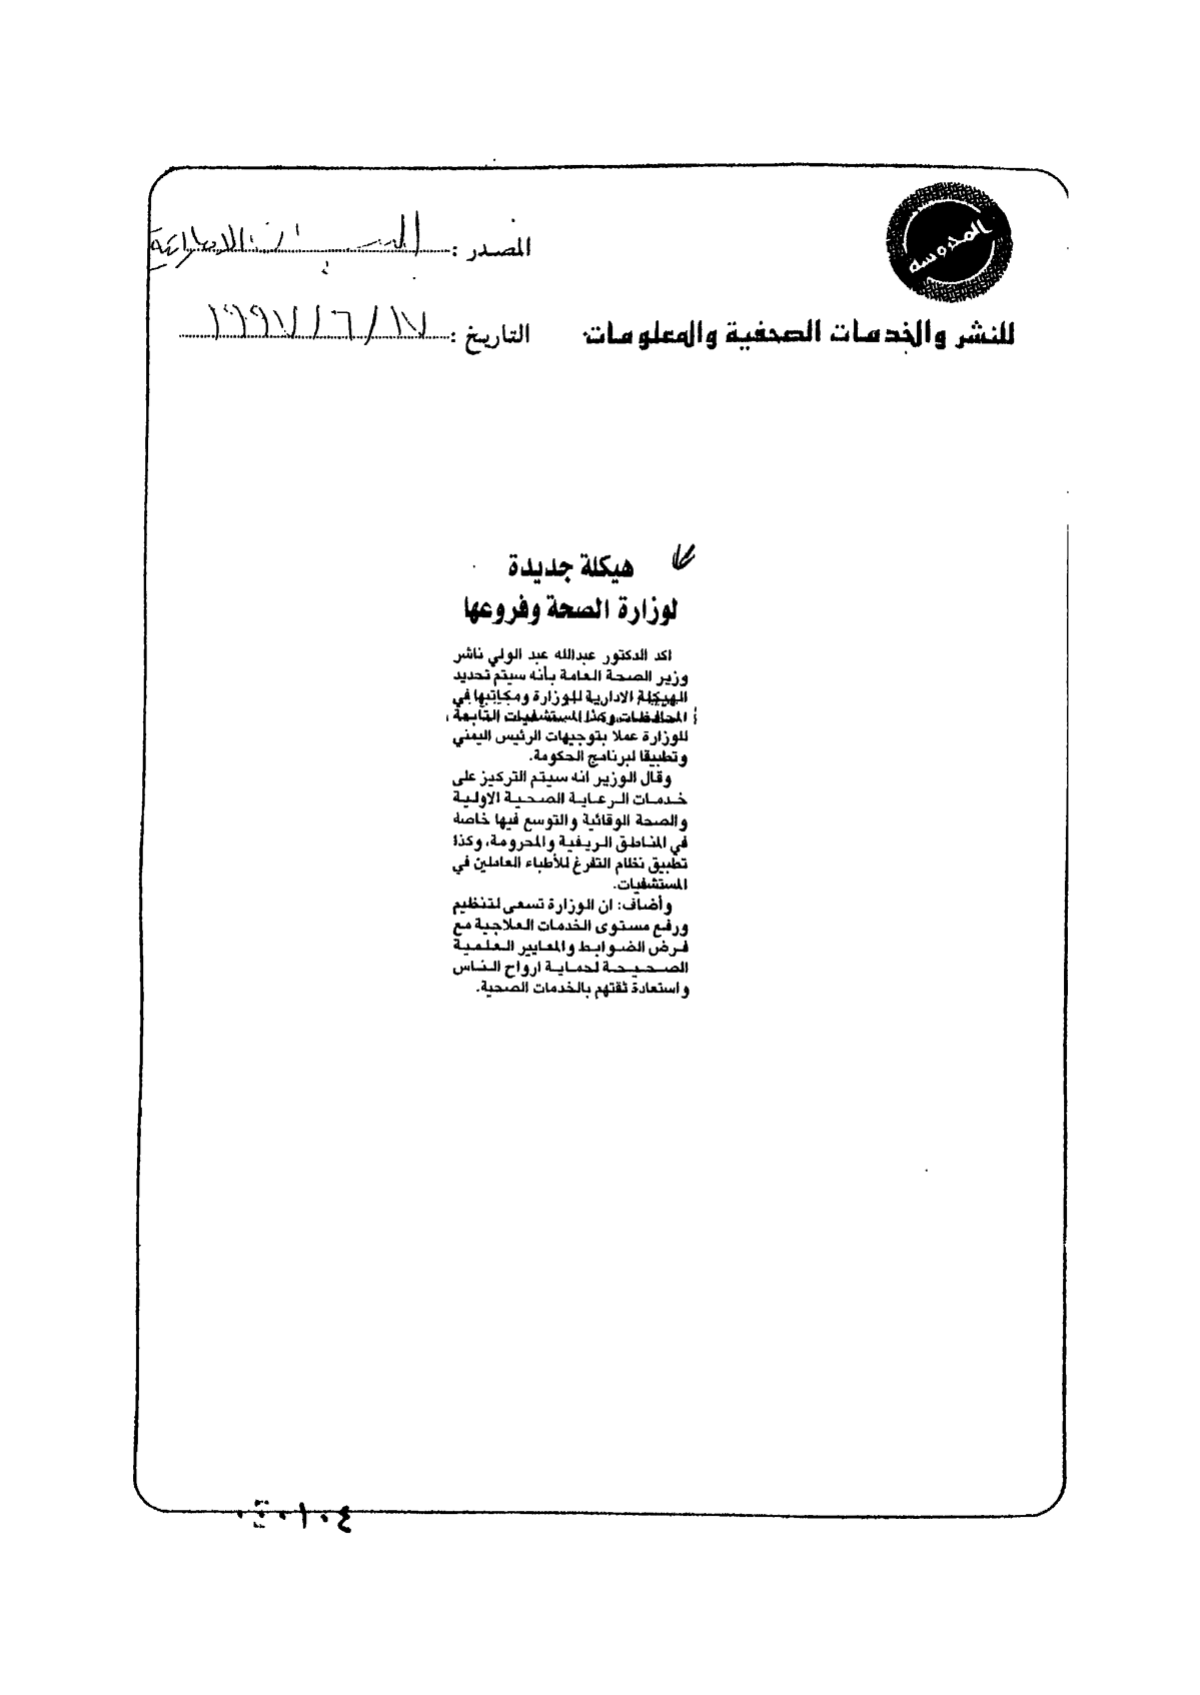 المحروسة
المصدر : البيان الاماراتية
للنشر والخدمات الصحفية والمعلومات
التاريخ : ١٩٩٧/٦/١٧
هيكلة جديدة
لوزارة الصحة وفروعها
اكد الدكتور عبدالله عبد الولي ناشر
وزير الصحة العامة بأنه سيتم تحديد
الهيكلة الادارية للوزارة ومكاتبها في
المحافظات وكذا المستشفيات التابعة
للوزارة عملا بتوجيهات الرئيس اليمني
وتطبيقا لبرنامج الحكومة.
وقال الوزير انه سيتم التركيز على
خدمات الرعاية الصحية الاولية
والصحة الوقائية والتوسع فيها خاصة
في المناطق الريفية والمحرومة، وكذا
تطبيق نظام التفرغ للأطباء العاملين في
المستشفيات.
وأضاف: ان الوزارة تسعى لتنظيم
ورفع مستوى الخدمات العلاجية مع
فرض الضوابط والمعايير العلمية
الصحيحة لحماية ارواح الناس
واستعادة ثقتهم بالخدمات الصحية.